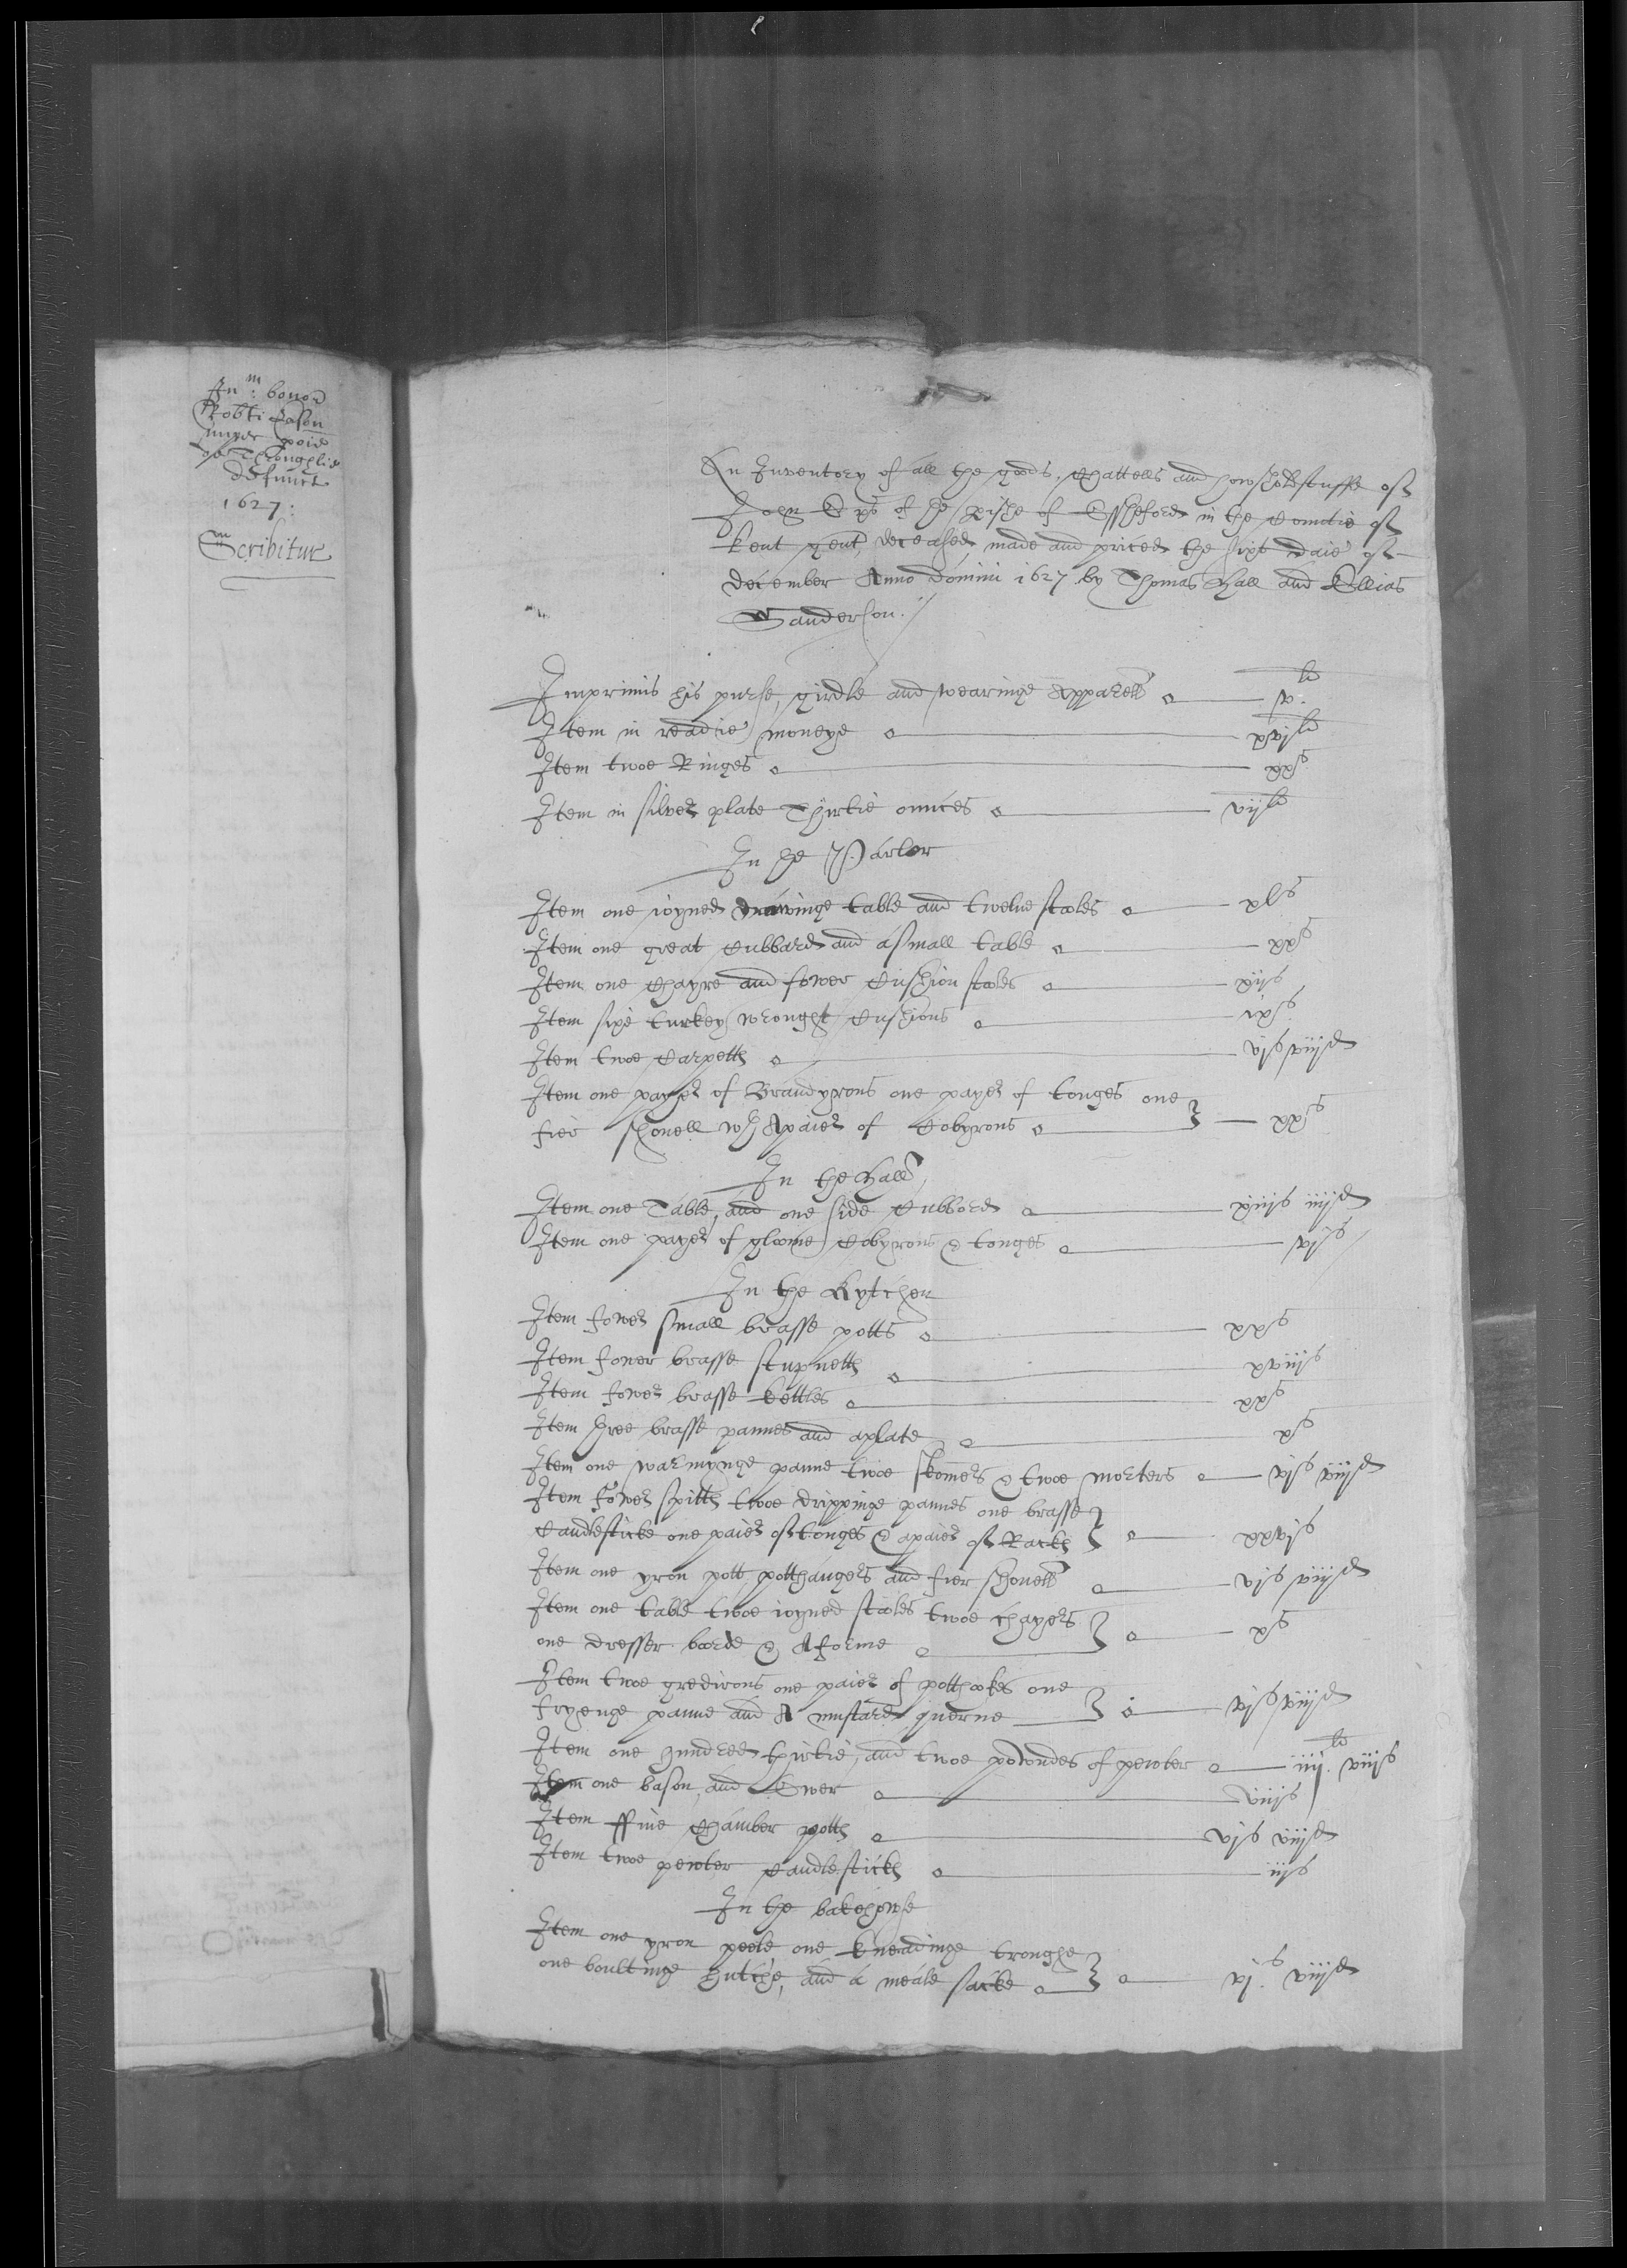 In^m: bonor
Robti Eason
nuper poie
de Throughlie
defunct
1627:
Scribitur
An Inventory of all the goods, Chattells and howsholdstuffe of
John Eps of the pishe of Essheford in the Countie of
Kent gent, deceased made and priced the sixt daie of
December Anno Domini 1627 by Thomas Hall and Ellias
Sanderson./
Imprimis his purse, girdle and wearinge Apparell v li
Item in readie moneye xvj li
Item twoe Ringes xx s
Item in silver plate Thirtie ounces vij li
In the Parlor
Item one ioyned drawinge table and twelve stooles xl s
Item one great Cubbard and a small table xx s
Item one Chayre and fower Cushion stooles xij s
Item sixe turkey wrought Cushions ix s
Item twoe Carpetts vj s viij d
Item one payer of Brandyrons one payer of tonges one
fier shovell wth A paier of Cobyrons xx s
In the Hall
Item one Table, and one side Cubbord xiij s iiij d
Item one payer of gloome Cobyrons & tonges vj s
In the Kytchen
Item fower small brasse potts xxx s
Item fower brasse stupnetts xviij s
Item fower brasse kettles xx s
Item three brasse pannes and a plate x s
Item one warmynge panne twoe skomers & twoe morters vj s viij d
Item fower spitts twoe drippinge pannes one brasse
Candlesticke one paier of tonges & a paier of Racks xxvj s
Item one yron pott potthangers and fier shovell vj s viij d
Item one table twoe ioyned stooles twoe chayers
one dresser borde & A forme x s
Item twoe gredirons one paier of potthookes one
fryenge panne and A mustard querne vj s viij d
Item one hundred thirtie, and twoe powndes of pewter iiij li viij s
Item one bason and Ewer viij s
Item ffive Chamber potts vj s viij d
Item twoe pewter Candlesticks iij s
In the bakehowse
Item one yron peele one kneadinge troughe
one boultinge hutche, and a meale sacke xj s viij d